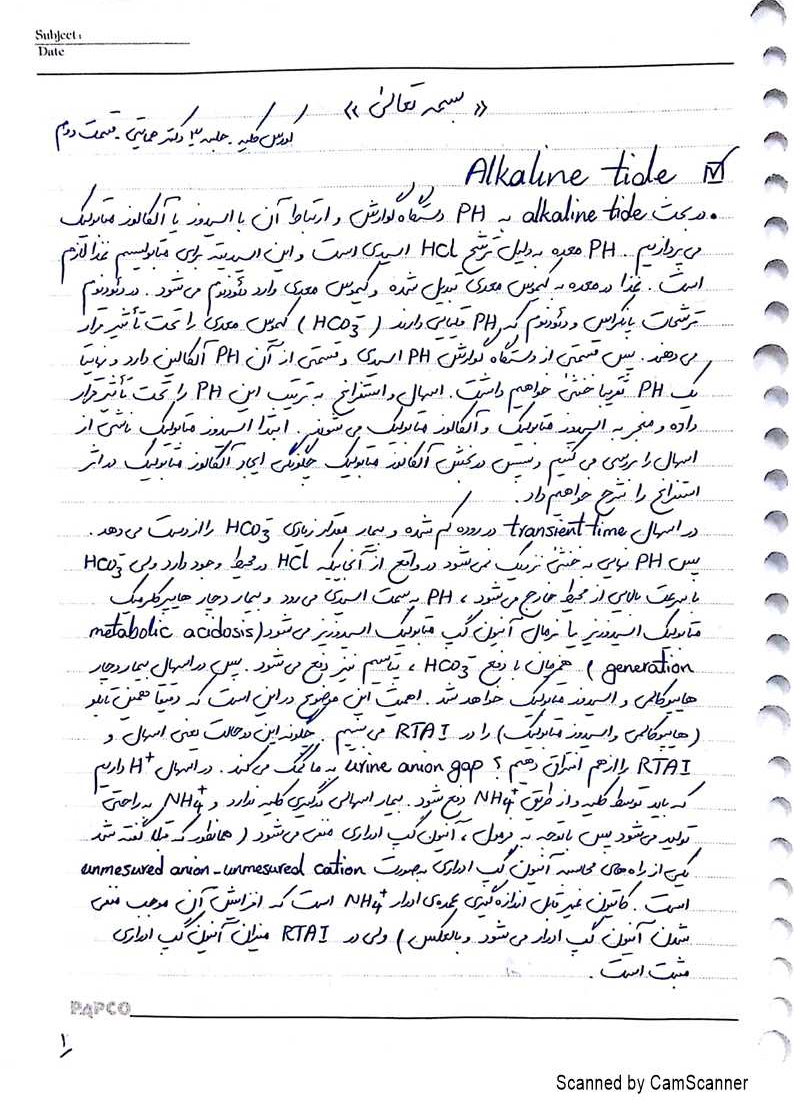 Subject:
Date
« بسمه تعالی »
کورس کلیه . جلسه ۳ دکتر حمایتی . قسمت دوم
Alkaline tide
• در بحث alkaline tide به PH دستگاه گوارش و ارتباط آن با اسیدوز یا آلکالوز متابولیک
می پردازیم . PH معده به دلیل ترشح HCl اسیدی است و این اسیدیته برای متابولیسم غذا لازم
است . غذا در معده به کیموس معدی تبدیل شده و کیموس معدی وارد دئودنوم می شود . در دئودنوم
ترشحات پانکراس و دئودنوم که PH قلیایی دارند ( HCO3⁻ ) کیموس معدی را تحت تأثیر قرار
می دهند . پس قسمتی از دستگاه گوارش PH اسیدی و قسمتی از آن PH آلکالین دارد و نهایتا
یک PH تقریبا خنثی خواهیم داشت . اسهال و استفراغ به ترتیب این PH را تحت تأثیر قرار
داده و منجر به اسیدوز متابولیک و آلکالوز متابولیک می شوند . ابتدا اسیدوز متابولیک ناشی از
اسهال را بررسی می کنیم و سپس در بخش آلکالوز متابولیک چگونگی ایجاد آلکالوز متابولیک در اثر
استفراغ را شرح خواهیم داد .
در اسهال transient time در روده کم شده و بیمار مقدار زیادی HCO3⁻ را از دست می دهد .
پس PH نهایی به خنثی نزدیک نمی شود در واقع از آنجاییکه HCl در محیط وجود دارد ولی HCO3⁻
با سرعت بالایی از محیط خارج می شود ، PH به سمت اسیدی می رود و بیمار دچار هایپرکلرمیک
متابولیک اسیدوزیز یا نرمال آنیون گپ متابولیک اسیدوزیز می شود (metabolic acidosis
generation ) همزمان با دفع HCO3⁻ ، پتاسیم نیز دفع می شود . پس در اسهال بیمار دچار
هایپوکالمی و اسیدوز متابولیک خواهد شد . اهمیت این موضوع در این است که دقیقا همین تابلو
(هایپوکالمی و اسیدوز متابولیک) را در RTA I می بینیم . چگونه این دو حالت یعنی اسهال و
RTA I را از هم افتراق دهیم ؟ urine anion gap به ما کمک می کند . در اسهال H⁺ داریم
که باید توسط کلیه و از طریق NH4⁺ دفع شود . بیمار اسهالی درگیری کلیه ندارد و NH4⁺ به راحتی
تولید می شود پس با توجه به فرمول ، آنیون گپ ادراری منفی می شود ( همانطور که قبلا گفته شد
یکی از راه های محاسبه آنیون گپ ادراری به صورت unmesured anion - unmesured cation
است . کاتیون غیر قابل اندازه گیری عمده ی ادرار NH4⁺ است که افزایش آن موجب منفی
شدن آنیون گپ ادرار می شود و بالعکس ) ولی در RTA I میزان آنیون گپ ادراری
مثبت است .
PAPCO
۱
Scanned by CamScanner